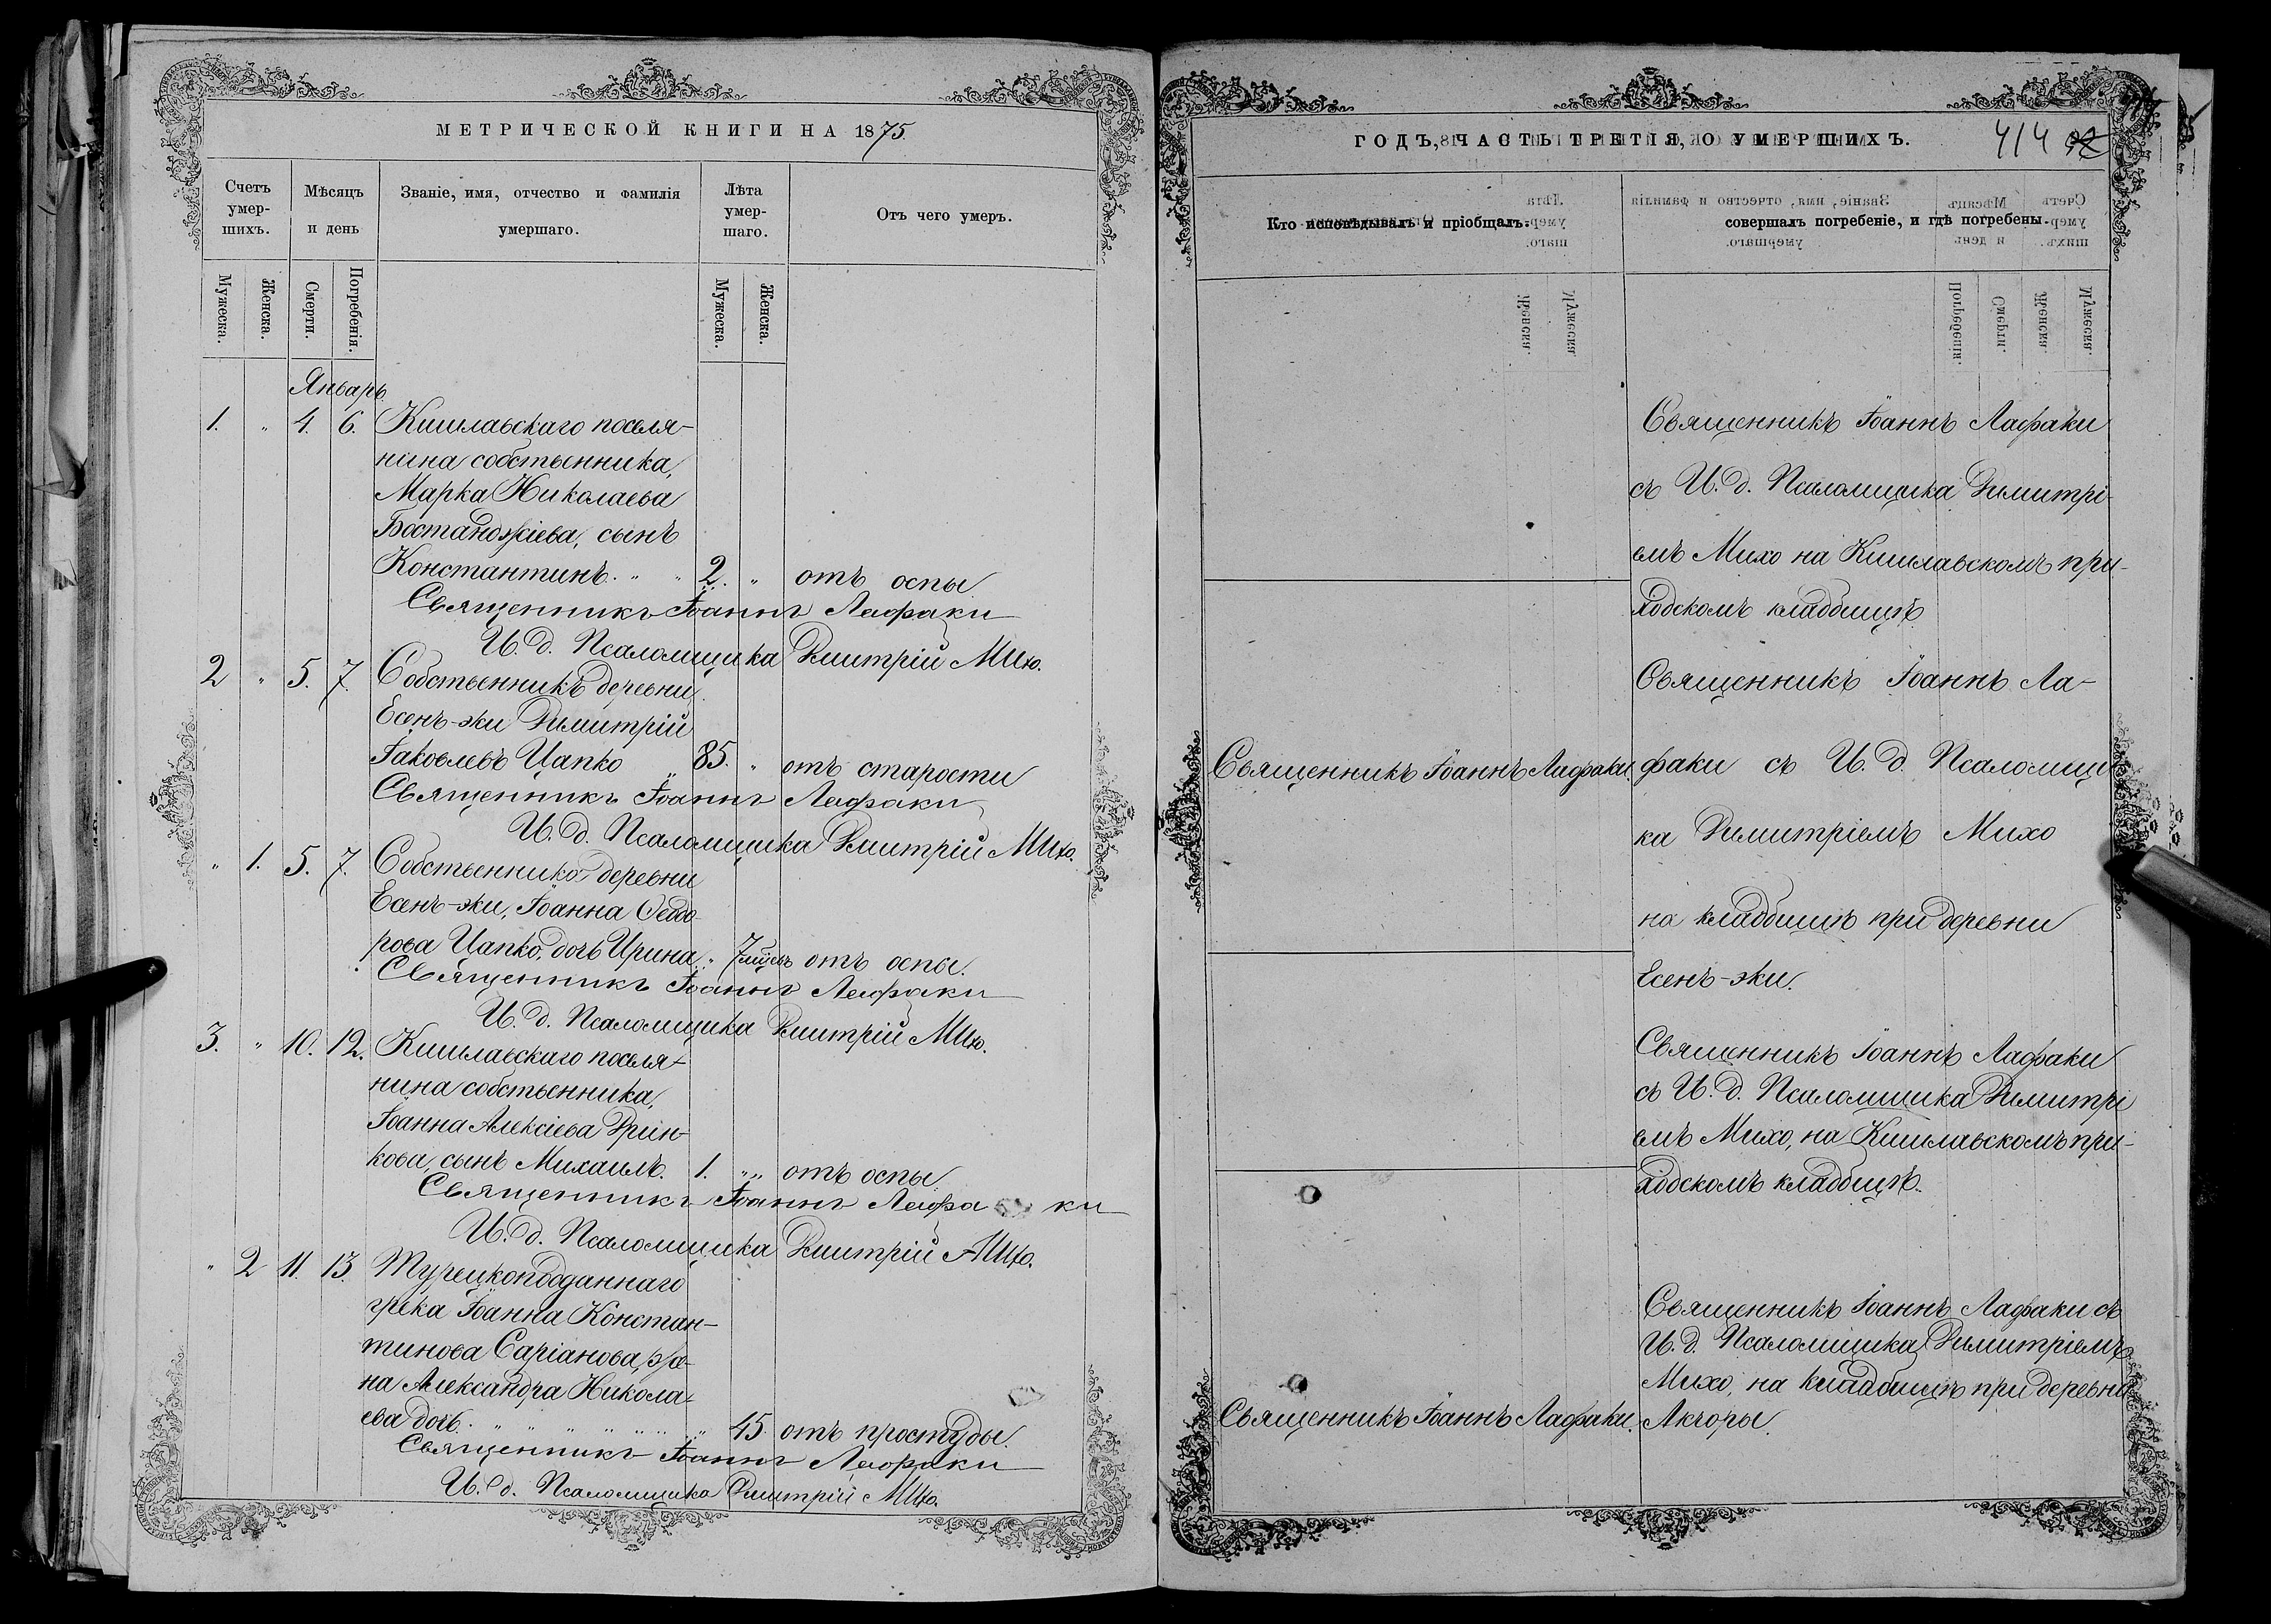 МЕТРИЧЕСКОЙ КНИГИ НА 1875.
Счетъ умер-шихъ.
Мѣсяцъ и день
Званіе, имя, отчество и фамилія умершаго.
Лѣта умер-шаго.
Отъ чего умеръ.
Мужеска.
Женска.
Смерти.
Погребенія.
Мужеска.
Женска.
Январь.
1. " 4. 6. Кишлавскаго поселя-
нина собственника,
Марка Николаева
Бостанджіева, сынъ
Константинъ. " " 2. " отъ оспы
Священникъ Іоаннъ Лафаки
И. д. Псаломщика Димитрій Михо.
2 " 5. 7. Собственникъ деревни
Есенъ-эки Димитрій
Іаковлевъ Цапко " 85. " отъ старости
Священникъ Іоаннъ Лафаки
И. д. Псаломщика Димитрій Михо.
" 1. 5. 7. Собственника деревни
Есенъ-эки, Іоанна Ѳеодо-
рова Цапко, дочь Ирина " 7 мѣсъ отъ оспы.
Священникъ Іоаннъ Лафаки
И. д. Псаломщика Димитрій Михо.
3. " 10. 12. Кишлавскаго поселя-
нина собственника,
Іоанна Алексіева Дрин-
кова, сынъ Михаилъ. 1. " " отъ оспы
Священникъ Іоаннъ Лафаки
И. д. Псаломщика Димитрій Михо.
" 2 11. 13. Турецкоподданнаго
грека Іоанна Констан-
тинова Саріанова, же-
на Александра Никола-
ева дочь. " " " " " " 45. отъ простуды.
Священникъ Іоаннъ Лафаки
И. д. Псаломщика Димитрій Михо.
ГОДЪ, ЧАСТЬ ТРЕТІЯ, О УМЕРШИХЪ.
414
Кто исповѣдывалъ и пріобщалъ.
совершалъ погребеніе, и гдѣ погребены.
Священникъ Іоаннъ Лафаки
съ И. д. Псаломщика Димитрі-
емъ Михо на Кишлавскомъ при-
ходскомъ кладбищѣ.
Священникъ Іоаннъ Лафаки.
Священникъ Іоаннъ Ла-
факи съ И. д. Псаломщи
ка Димитріемъ Михо
на кладбищѣ при деревни
Есенъ-эки.
Священникъ Іоаннъ Лафаки
съ И. д. Псаломщика Димитрі
емъ Михо, на Кишлавскомъ при-
ходскомъ кладбищѣ.
Священникъ Іоаннъ Лафаки.
Священникъ Іоаннъ Лафаки съ
И. д. Псаломщика Димитріемъ
Михо, на кладбищѣ при деревни
Акчоры.